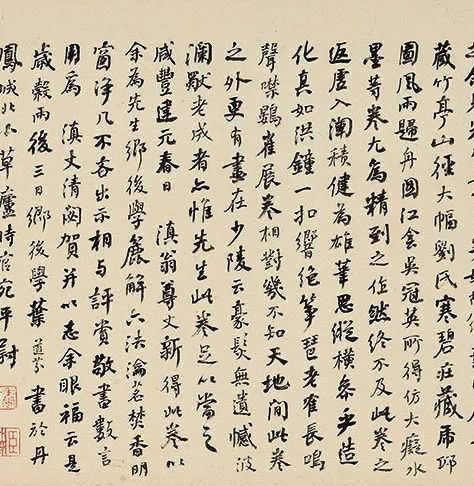 藏竹亭山徑大幅劉氏寒碧莊藏虎邱
圖風雨歸舟圖江會吳冠英所得仿大癡水
墨等卷尤為精到之作然終不及此卷之
返虛入渾積健為雄筆思縱橫參乎造
化真如洪鐘一扣響絕箏琶老鶴長鳴
聲噤鷃雀展卷相對幾不知天地間此卷
之外更有畫在少陵云豪髮無遺憾波
瀾獨老成者亦惟先生此卷足以當之
咸豐建元春日 滇翁尊丈新得此卷以
余為先生鄉後學麤解六法瀹茗焚香明
窗淨几不吝出示相與評賞敬書數言
用為 滇丈清閟賀并以志余眼福云是
歲穀雨後三日鄉後學葉道芬書於丹
鳳城北之草廬時官宛平尉